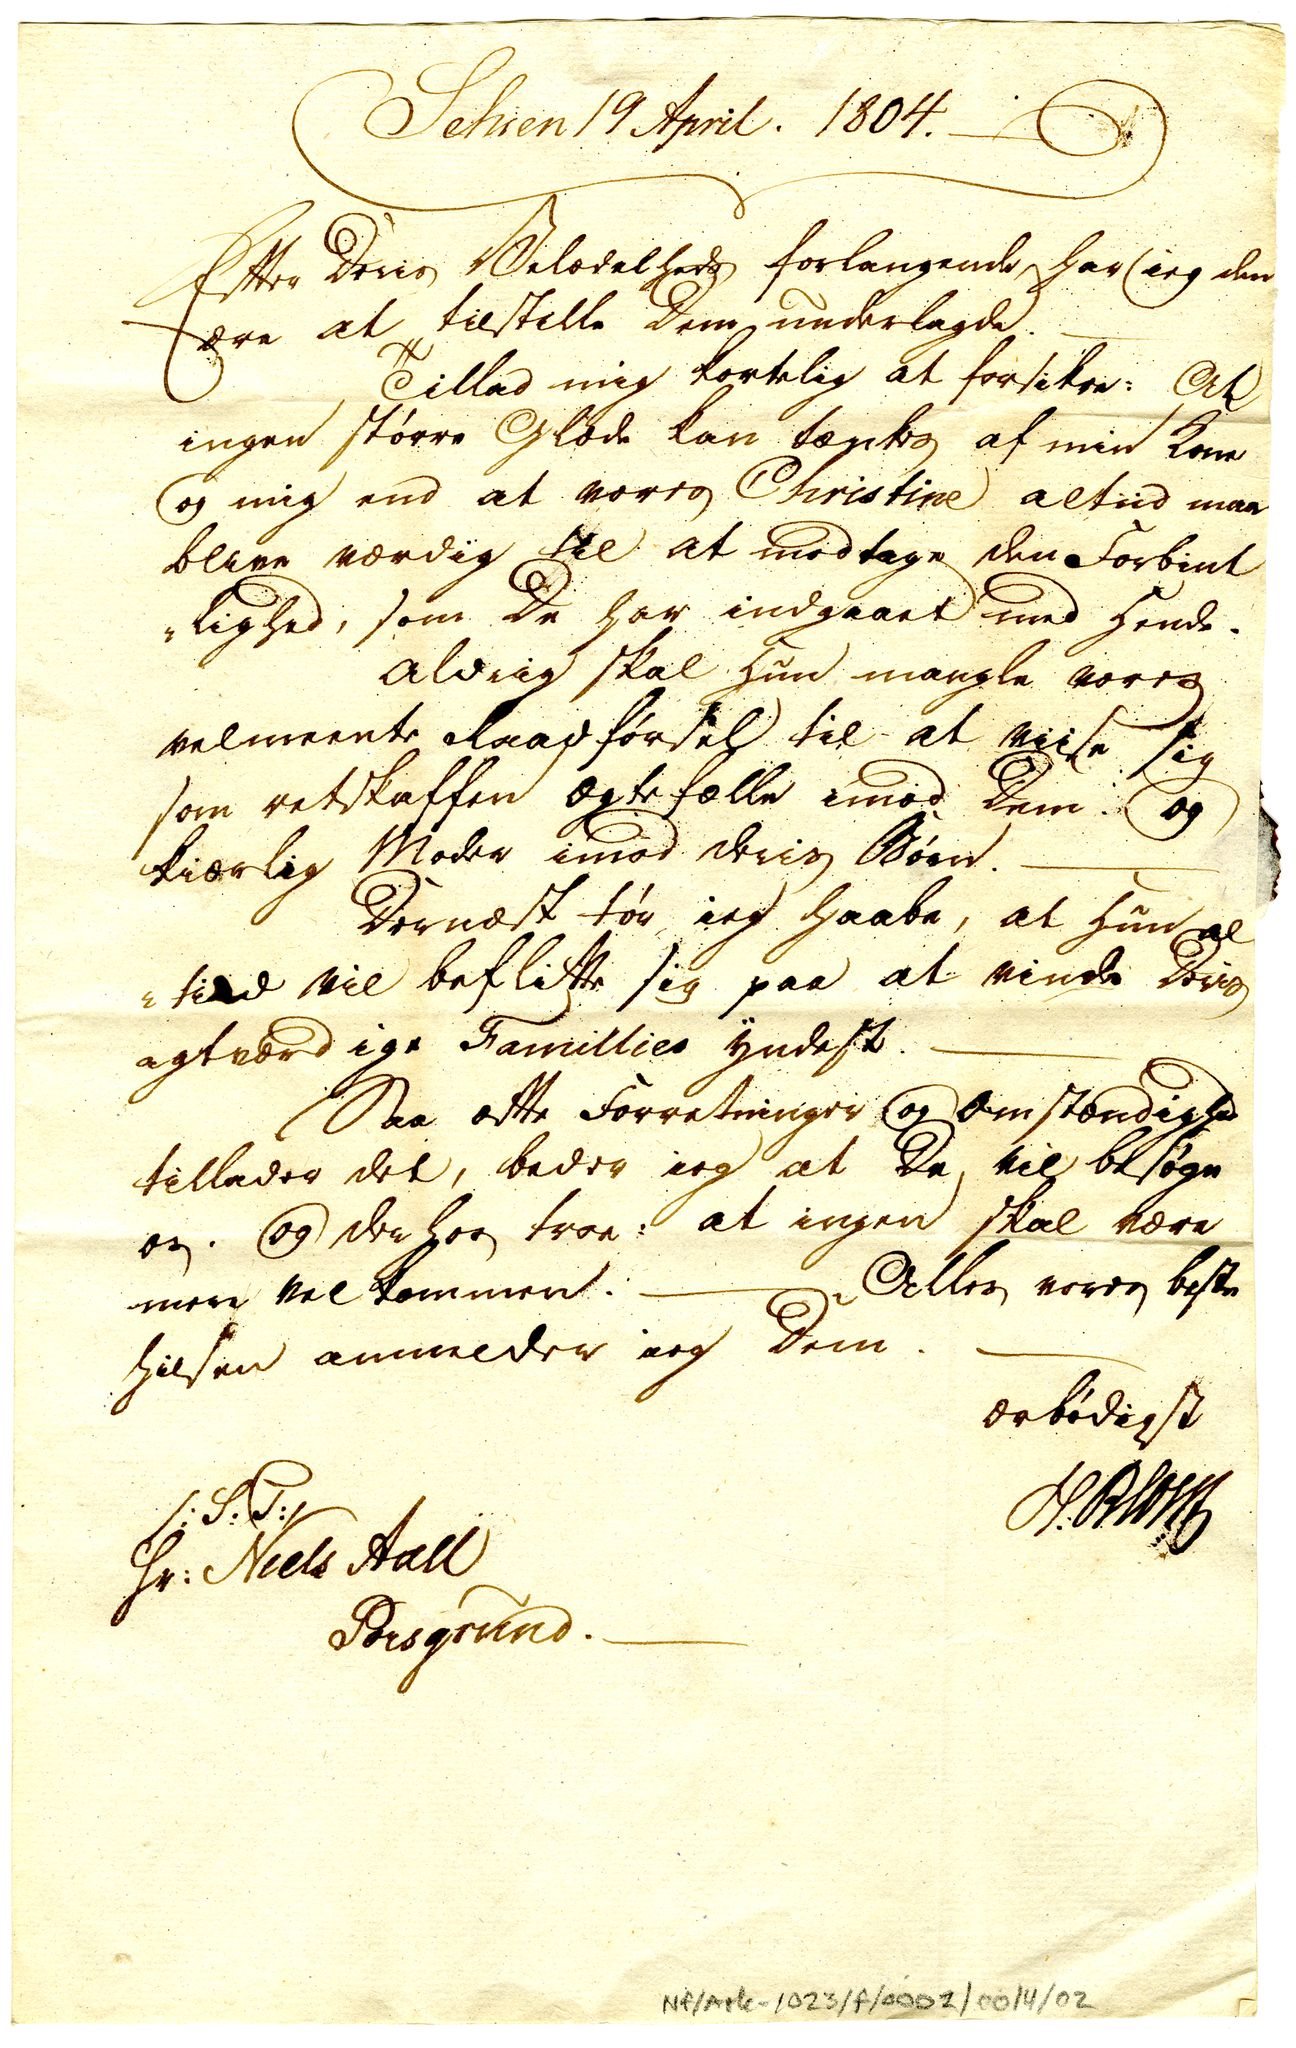 Schien 19 April. 1804.
Efter Deris Velædelheds forlangende, har ieg den
ære at tilstille Dem underlagde.
Tillad mig kortelig at forsikre: At
ingen større Glæde kan tænkes af min Kone
og mig end at vores Christine altiid maa
blive værdig til at modtage den Forbint
„lighed, som De har indgaaet med Hende.
Aldriig skal Hun mangle vores
velmeente Raadførsel til at viise sig
som retskaffen Ægtefælle imod Dem: og
kiærlig Moder imod deris Børn.
Dernæst tør ieg haabe, at Hun al
„tiid vil beflitte sig paa at vinde Deris
agtværdige Famillies Yndest.
Saa ofte Forretninger og Omstændighed
tillader det, beder ieg at De vil besøge
os. og derhos troe: at ingen skal være
mere velkommen. Alles vores beste
Hilsen anmelder ieg Dem.
ærbødigst
H. Blom
/: S: T: /
Hr: Niels Aall
Porsgrund.
NF/Ark-1023/F/0002/0014/02